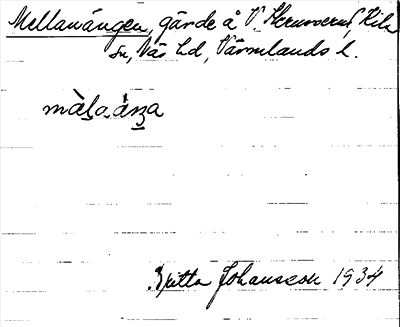 Mellanängen, gärde å V. Skruvserud, Kila
sn, Näs hd, Värmlands l.
màḻa,áṉa
Britta Johansson 1934